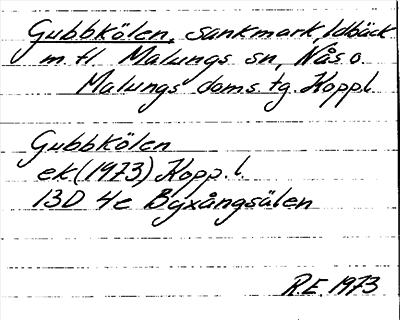 Gubbkölen, sankmark, Idbäck
m fl Malungs sn, Nås o.
Malungs doms. tg. Koppl.
Gubbkölen
ek (1973) Kopp. l.
13D 4e Byxångsälen
R.E. 1973